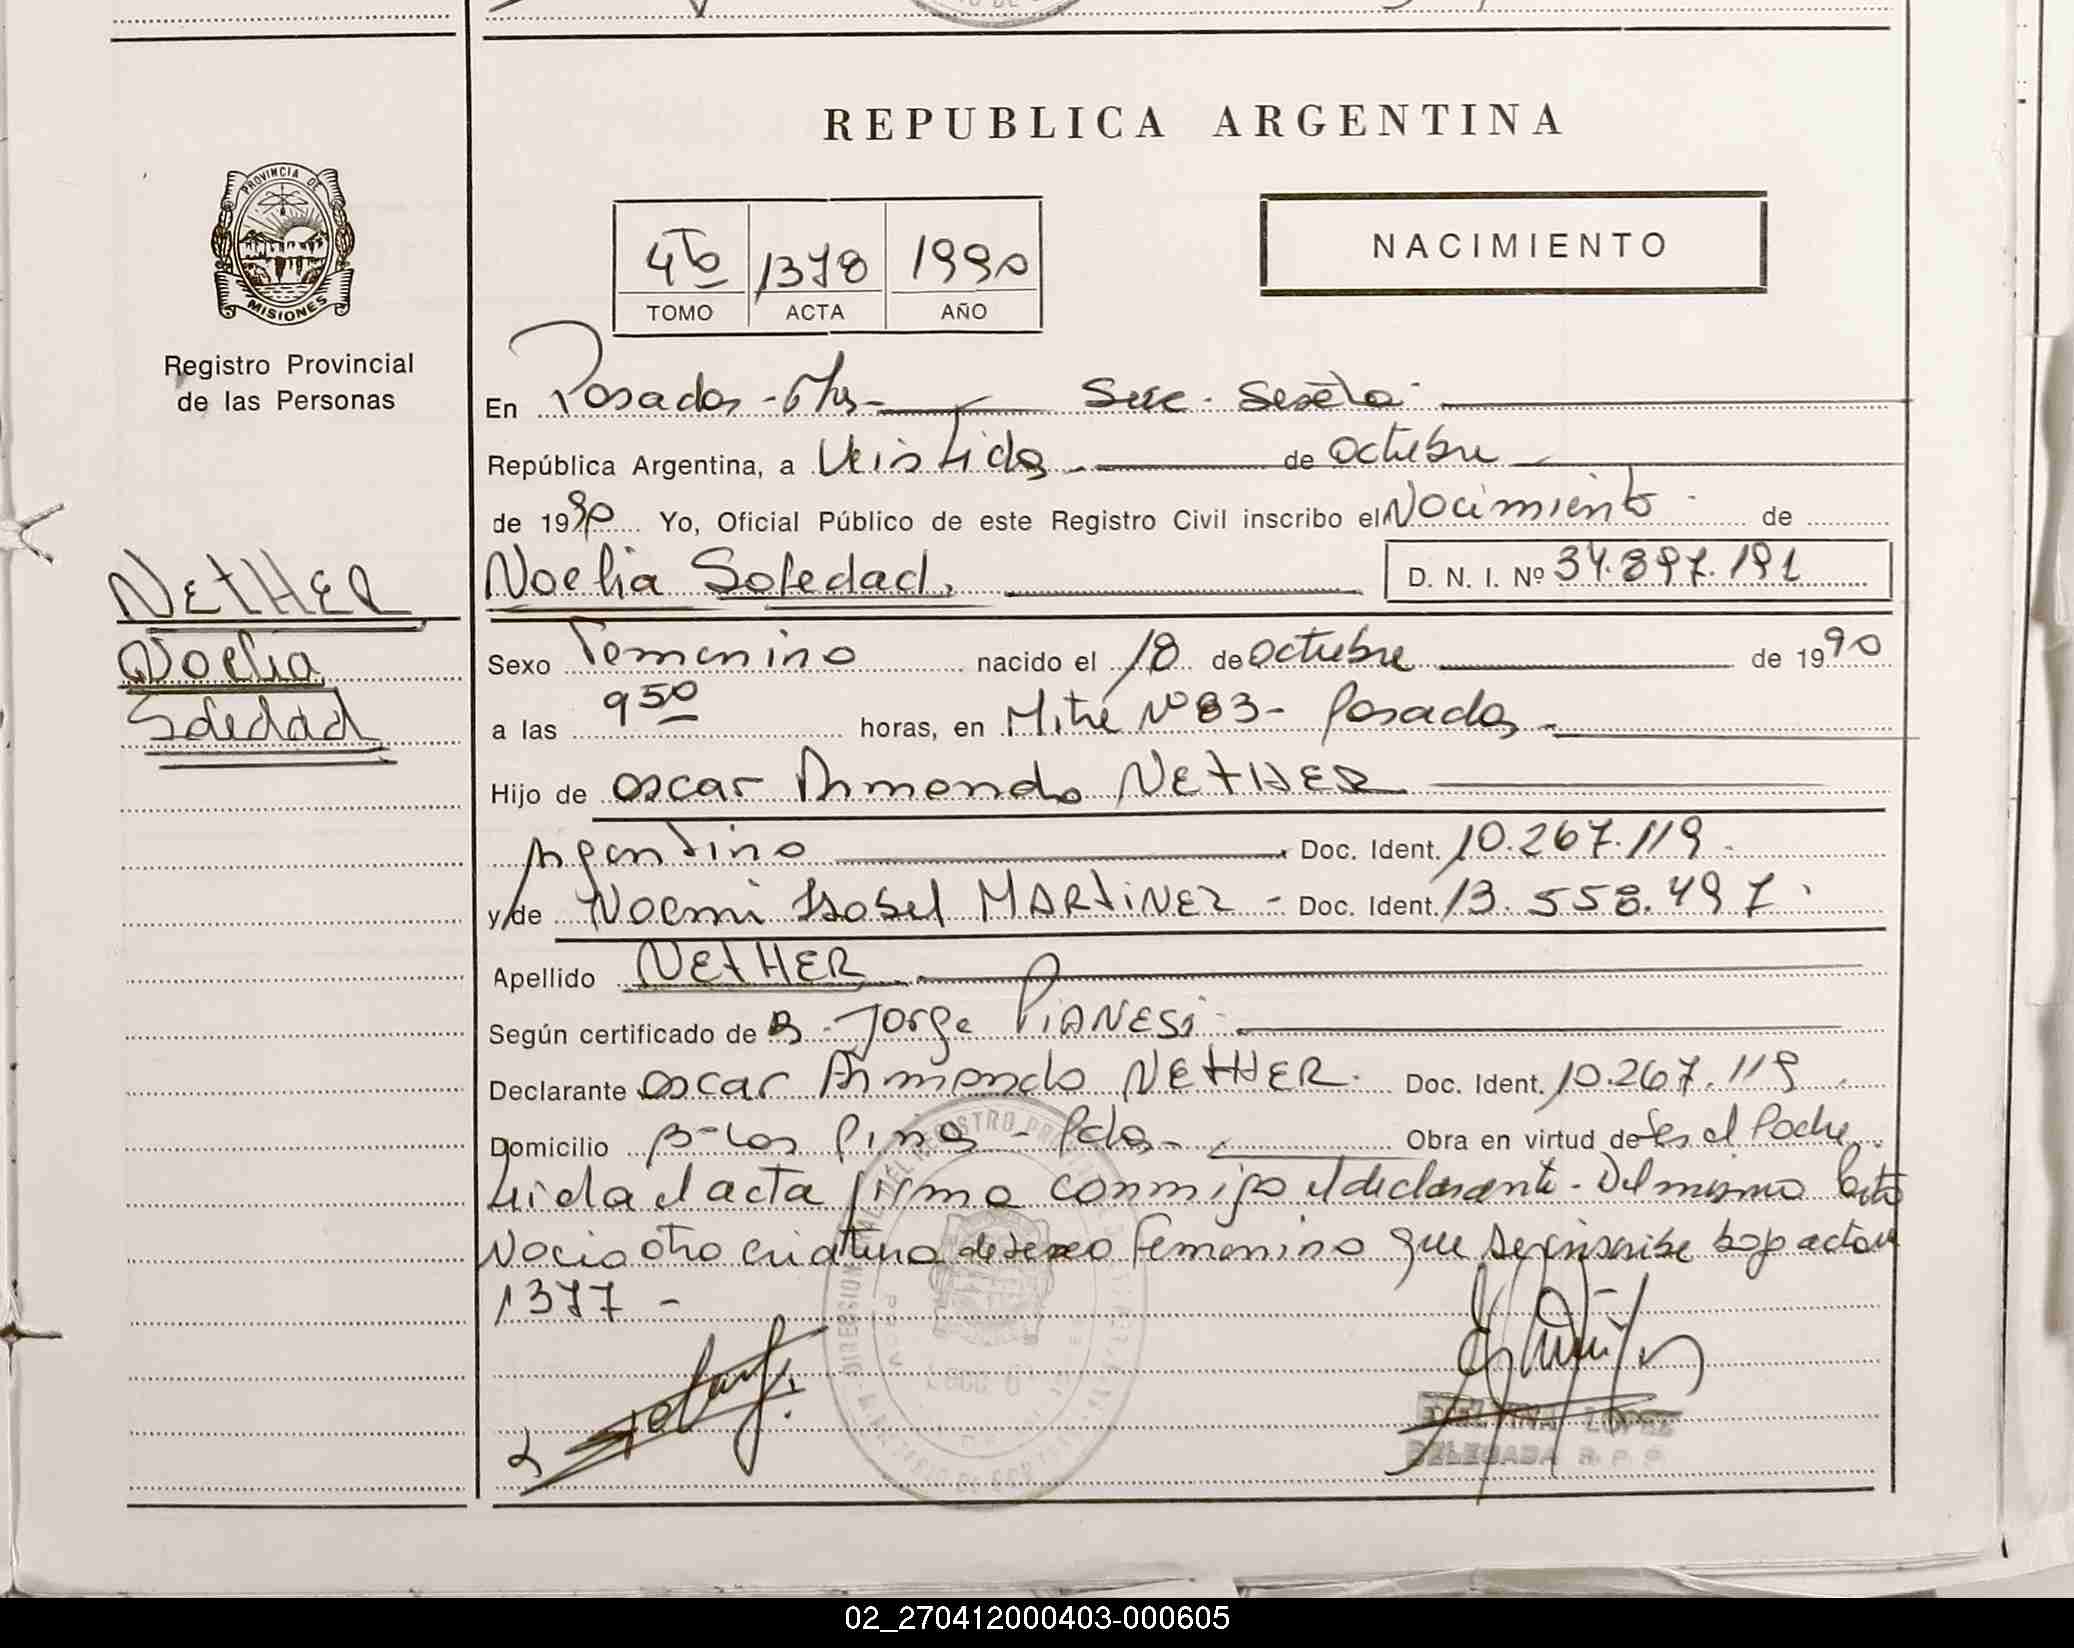 REPUBLICA ARGENTINA
PROVINCIA DE
MISIONES
Registro Provincial
de las Personas
4to 1378 1990
TOMO ACTA AÑO
NACIMIENTO
En Posadas - Mnes - Secc. Sexta
República Argentina, a Veintidos de octubre
de 1990 Yo, Oficial Público de este Registro Civil inscribo el Nacimiento de
Noelia Soledad, D. N. I. Nº 34.897.191
NETHER
Noelia
Soledad
Sexo Femenino nacido el 18 de octubre de 1990
a las 9 50 horas, en Mitre Nº 83 - Posadas -
Hijo de oscar Armando NETHER
Argentino Doc. Ident. 10.267.119
y/de Noemi Isabel MARTINEZ - Doc. Ident. 13.558.497
Apellido NETHER
Según certificado de Jorge PIANESI
Declarante oscar Armando NETHER. Doc. Ident. 10.267.119
Domicilio Bº Los Pinos - Pdas - Obra en virtud de ser el Padre
Leida el acta firma conmigo el declarante - Del mismo Parto
Nacio otra criatura de sexo femenino que se inscribe bajo acta nº
1377 -
LOPEZ
DELEGADA R. P. P.
02_270412000403-000605